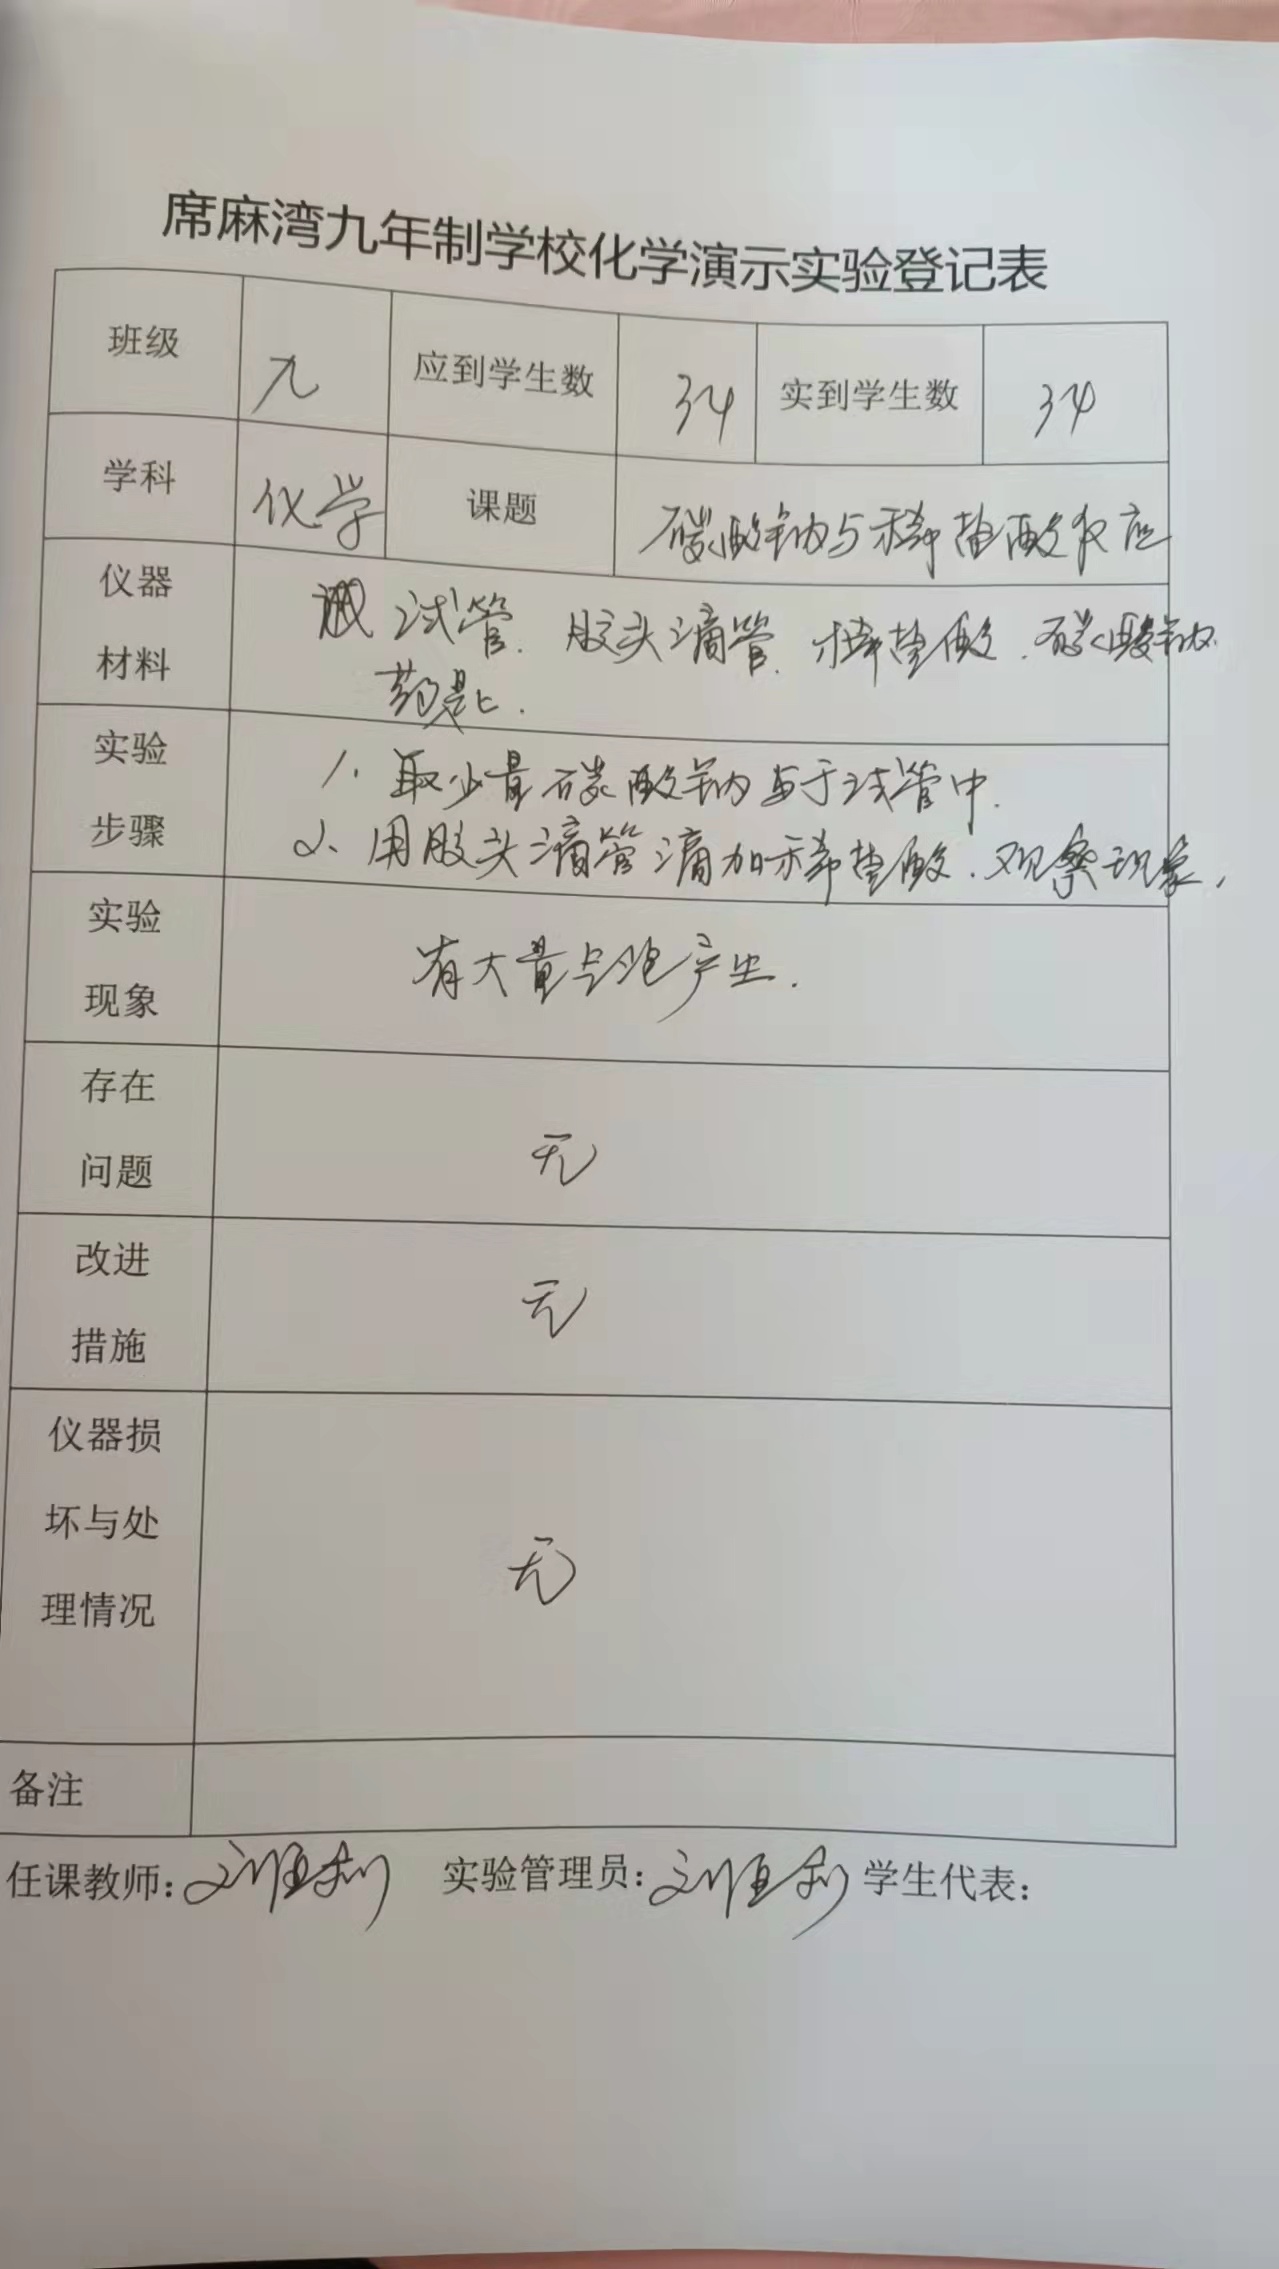 席麻湾九年制学校化学演示实验登记表
班级 九 应到学生数 34 实到学生数 34
学科 化学 课题 碳酸钠与稀盐酸反应
仪器 试管、胶头滴管、稀盐酸、碳酸钠
材料 药匙.
实验 1、取少量碳酸钠与于试管中.
步骤 2、用胶头滴管滴加稀盐酸、观察现象,
实验 有大量气泡产生.
现象
存在
问题 无
改进 无
措施
仪器损
坏与处 无
理情况
备注
任课教师: 实验管理员: 学生代表: